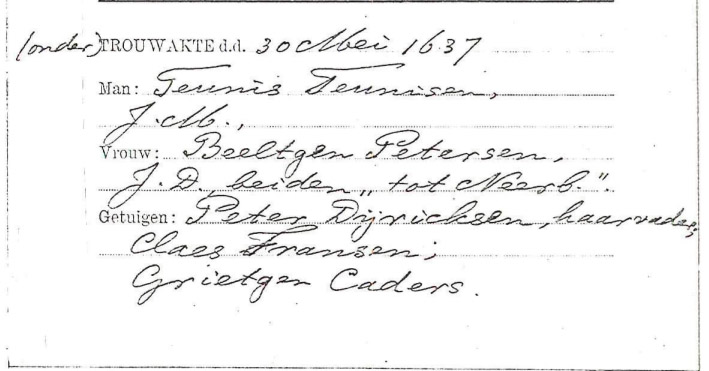 (onder)TROUWAKTE d.d. 30 Mei 1637
Man: Teunis Teunisen,
J.M.,
Vrouw: Beeltgen Petersen,
J.D., beiden „tot Neerb.".
Getuigen: Peter Dijricksen, haar vader;
Claes Fransen;
Grietgen Caders.